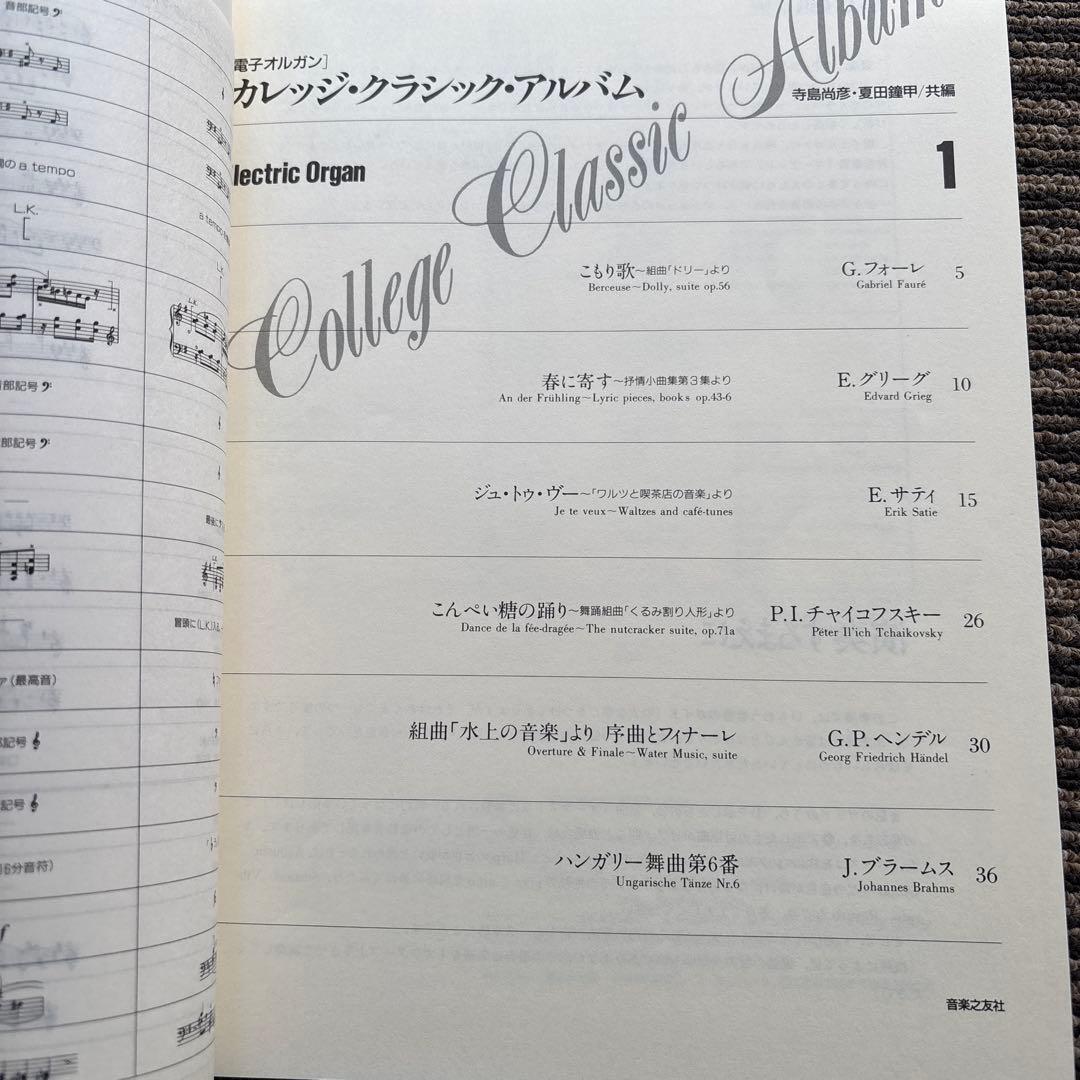 音部記号
のa tempo
L.K.
a tempo
L.K.
音部記号
部記号
冒頭に(L.K.)
(最高音)
部記号
記号
16分音符)
電子オルガン]
カレッジ・クラシック・アルバム
寺島尚彦・夏田鐘甲/共編
lectric Organ
College Classic Album
1
こもり歌~組曲「ドリー」より G.フォーレ 5
Berceuse~Dolly, suite op.56 Gabriel Fauré
春に寄す~抒情小曲集第3集より E.グリーグ 10
An der Frühling~Lyric pieces, books op.43-6 Edvard Grieg
ジュ・トゥ・ヴー~「ワルツと喫茶店の音楽」より E.サティ 15
Je te veux~Waltzes and café-tunes Erik Satie
こんぺい糖の踊り~舞踊組曲「くるみ割り人形」より P.I.チャイコフスキー 26
Dance de la fée-dragée~The nutcracker suite, op.71a Péter Il'ich Tchaikovsky
組曲「水上の音楽」より 序曲とフィナーレ G.P.ヘンデル 30
Overture & Finale~Water Music, suite Georg Friedrich Händel
ハンガリー舞曲第6番 J.ブラームス 36
Ungarische Tänze Nr.6 Johannes Brahms
音楽之友社